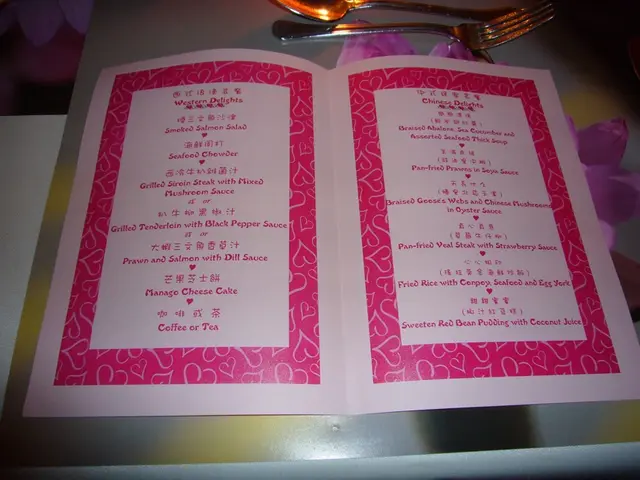 西式情侶套餐
Western Delights
煙三文魚沙律
Smoked Salmon Salad
海鮮周打
Seafood Chowder
西冷牛扒雜菌汁
Grilled Siroin Steak with Mixed
Mushroom Sauce
或 or
扒牛柳黑椒汁
Grilled Tenderloin with Black Pepper Sauce
或 or
大蝦三文魚香草汁
Prawn and Salmon with Dill Sauce
芒果芝士餅
Manago Cheese Cake
咖啡或茶
Coffee or Tea
中式情侶套餐
Chinese Delights
Braised Abalone, Sea Cucumber and
Assorted Seafood Thick Soup
Pan-fried Prawns in Soya Sauce
Braised Goose's Webs and Chinese Mushrooms
in Oyster Sauce
Pan-fried Veal Steak with Strawberry Sauce
心心相印
Fried Rice with Conpoy, Seafood and Egg York
甜甜蜜蜜
(椰汁紅豆糕)
Sweeten Red Bean Pudding with Coconut Juice